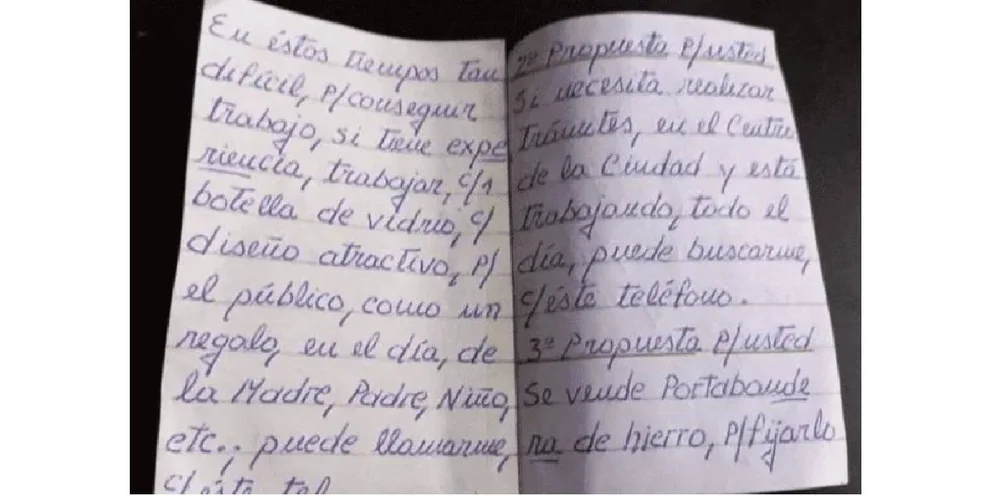 En éstos tiempos tan
difícil, p/conseguir
trabajo, si tiene expe
riencia, trabajar, c/1
botella de vidrio, c/
diseño atractivo, p/
el público, como un
regalo, en el día, de
la Madre, Padre, Niño,
etc.; puede llamarme,
c/éste tel
2ª Propuesta P/usted
Si necesita realizar
Trámites, en el Centro
de la Ciudad y está
trabajando, todo el
día, puede buscarme,
c/éste teléfono.
3ª Propuesta P/usted
Se vende Portabande
ra de hierro, p/fijarlo